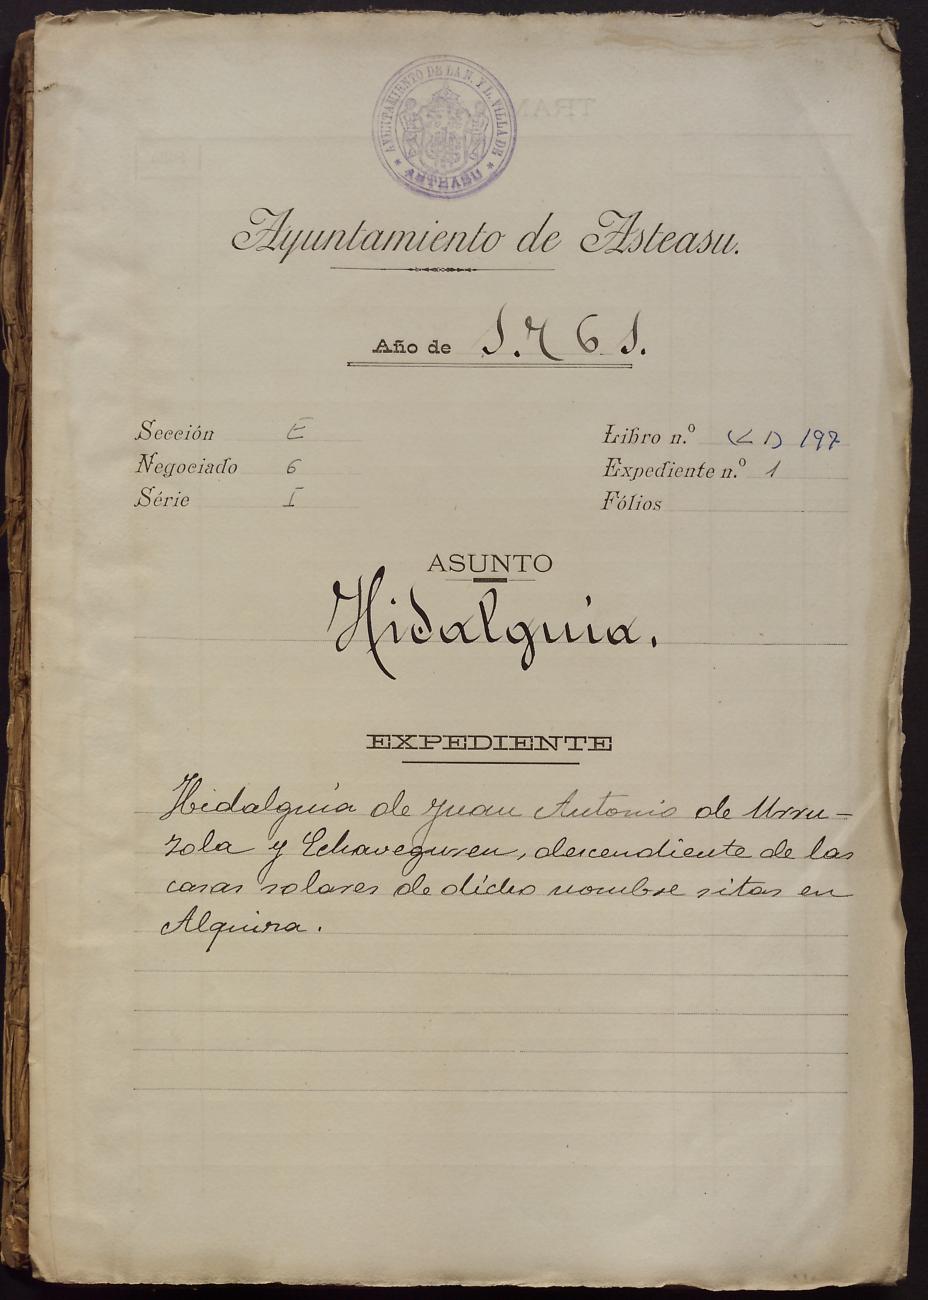 AYUNTAMIENTO DE LA N. Y L. VILLA DE
* ASTEASU *
Ayuntamiento de Asteasu.
Año de 1.761.
Sección E
Libro n.º (L 1) 197
Negociado 6
Expediente n.º 1
Série I
Fólios
ASUNTO
Hidalguía.
EXPEDIENTE
Hidalguía de Juan Antonio de Urru-
zola y Echaveguren, descendiente de las
casas solares de dicho nombre sitas en
Alquiza.